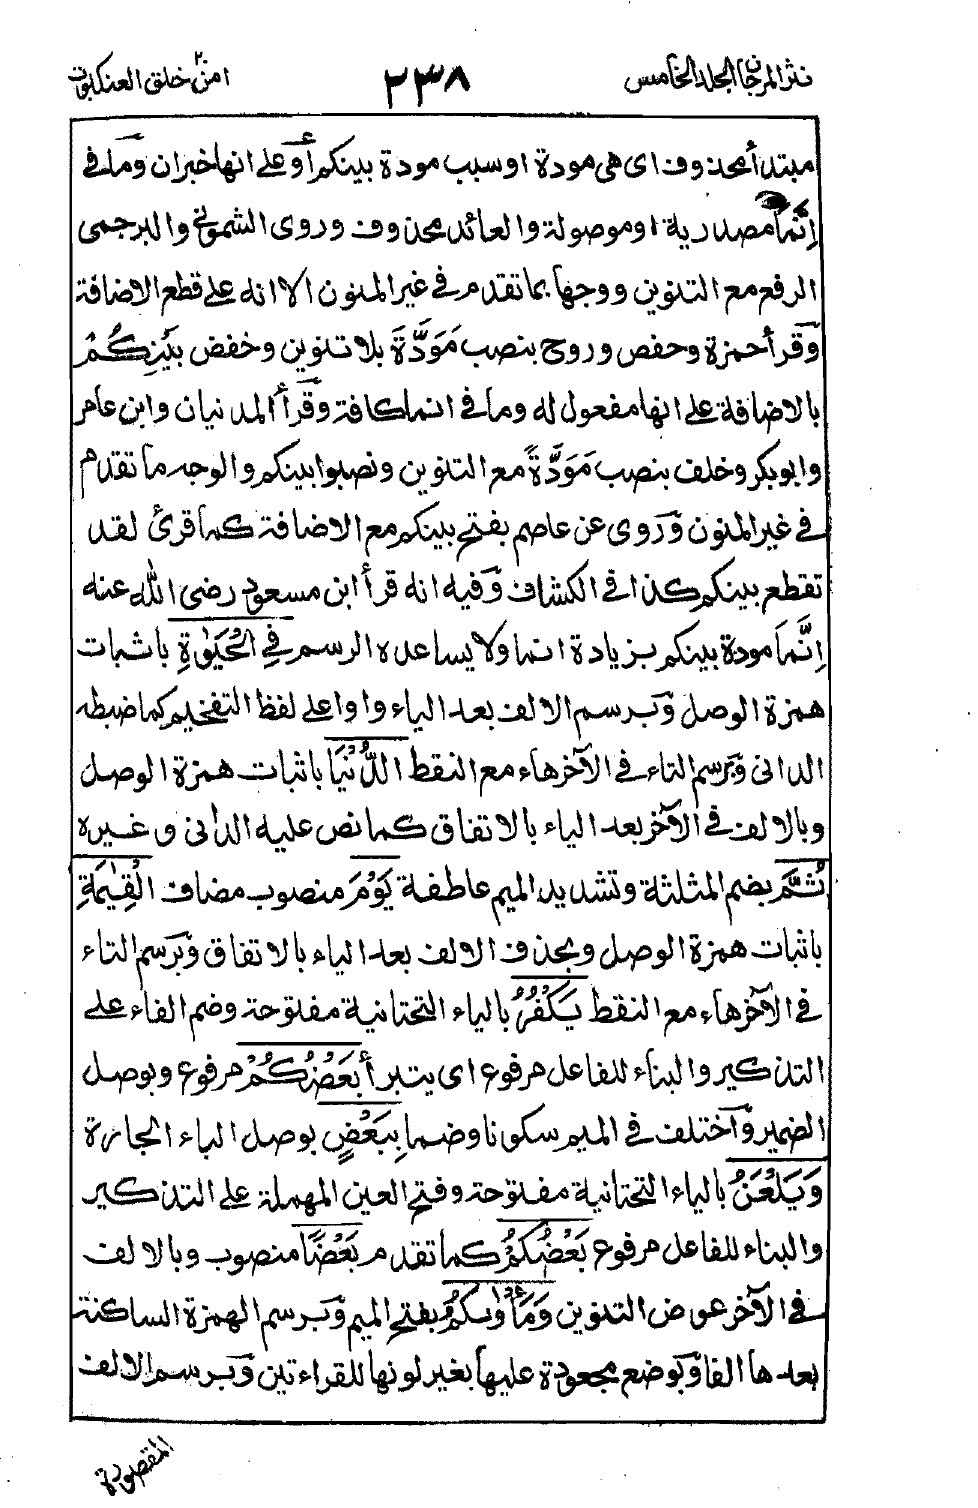 نثر المرجان الجلد الخامس ٢٣٨ امن خلق ٢٠ العنكبوت
مبتدأ محذوف اى هى مودة او سبب مودة بينكم أو على انها خبران وما فى
إنما مصدرية او موصولة والعائد محذوف وروى الشمونى والبرجمى
الرفع مع التنوين ووجها بما تقدم فى غير المنون الا انه على قطع الاضافة
وقرأ حمزة وحفص وروح بنصب مَوَدَّةَ بلا تنوين وخفض بَيْنِكُمْ
بالاضافة على انها مفعول له وما فى انما كافة وقرأ المدنيان وابن عامر
وابوبكر وخلف بنصب مَوَدَّةً مع التنوين ونصبوا بينكم والوجه ما تقدم
فى غير المنون وروى عن عاصم بفتح بينكم مع الاضافة كما قرئ لقد
تقطع بينكم كذا فى الكشاف وفيه انه قرأ ابن مسعود رضى الله عنه
إنَّمَا مودة بينكم بزيادة انما ولا يساعده الرسم فِي الْحَيٰوةِ باثبات
همزة الوصل وبرسم الالف بعد الياء واوا على لفظ التفخيم كما ضبطه
الدانى وبرسم التاء فى الآخر هاء مع النقط الدُّنْيَا باثبات همزة الوصل
وبالالف فى الآخر بعد الياء بالاتفاق كما نص عليه الدانى و غيره
ثُمَّ بضم المثلثة وتشديد الميم عاطفة يَوْمَ منصوب مضاف الْقِيٰمَةِ
باثبات همزة الوصل وبحذف الالف بعد الياء بالاتفاق وبرسم التاء
فى الآخر هاء مع النقط يَكْفُرُ بالياء التحتانية مفتوحة وضم الفاء على
التذكير والبناء للفاعل مرفوع اى يتبرأ بَعْضُكُمْ مرفوع وبوصل
الضمير وآختلف فى الميم سكونا وضما بِبَعْضٍ بوصل الباء الجارة
وَيَلْعَنُ بالياء التحتانية مفتوحة وفتح العين المهملة على التذكير
والبناء للفاعل مرفوع بَعْضُكُمْ كما تقدم بَعْضًا منصوب وبالالف
فى الآخر عوض التنوين وَمَأْوٰىكُمُ بفتح الميم وبرسم الهمزة الساكنة
بعدها الفا وبوضع مجعودة عليها بغير لونها للقراءتين وبرسم الالف
المقصورة